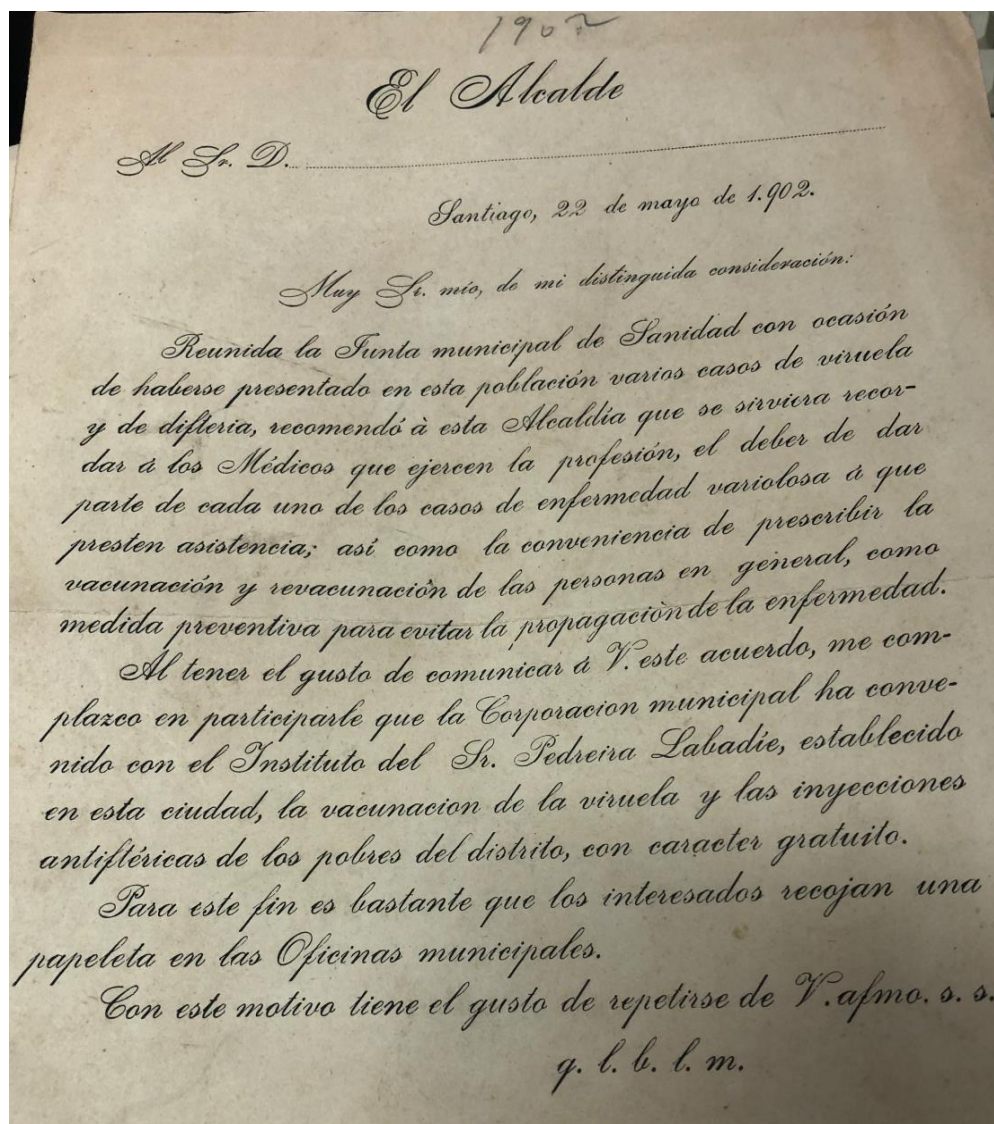 1902
El Alcalde
Al Sr. D.
Santiago, 22 de mayo de 1.902.
Muy Sr. mío, de mi distinguida consideración:
Reunida la Junta municipal de Sanidad con ocasión
de haberse presentado en esta población varios casos de viruela
y de difteria, recomendó à esta Alcaldía que se sirviera recor-
dar á los Médicos que ejercen la profesión, el deber de dar
parte de cada uno de los casos de enfermedad variolosa á que
presten asistencia; así como la conveniencia de prescribir la
vacunación y revacunación de las personas en general, como
medida preventiva para evitar la propagaciòn de la enfermedad.
Al tener el gusto de comunicar á V. este acuerdo, me com-
plazco en participarle que la Corporacion municipal ha conve-
nido con el Instituto del Sr. Pedreira Labadíe, establecido
en esta ciudad, la vacunacion de la viruela y las inyecciones
antiftéricas de los pobres del distrito, con caracter gratuito.
Para este fin es bastante que los interesados recojan una
papeleta en las Oficinas municipales.
Con este motivo tiene el gusto de repetirse de V. afmo. s. s.
q. l. b. l. m.